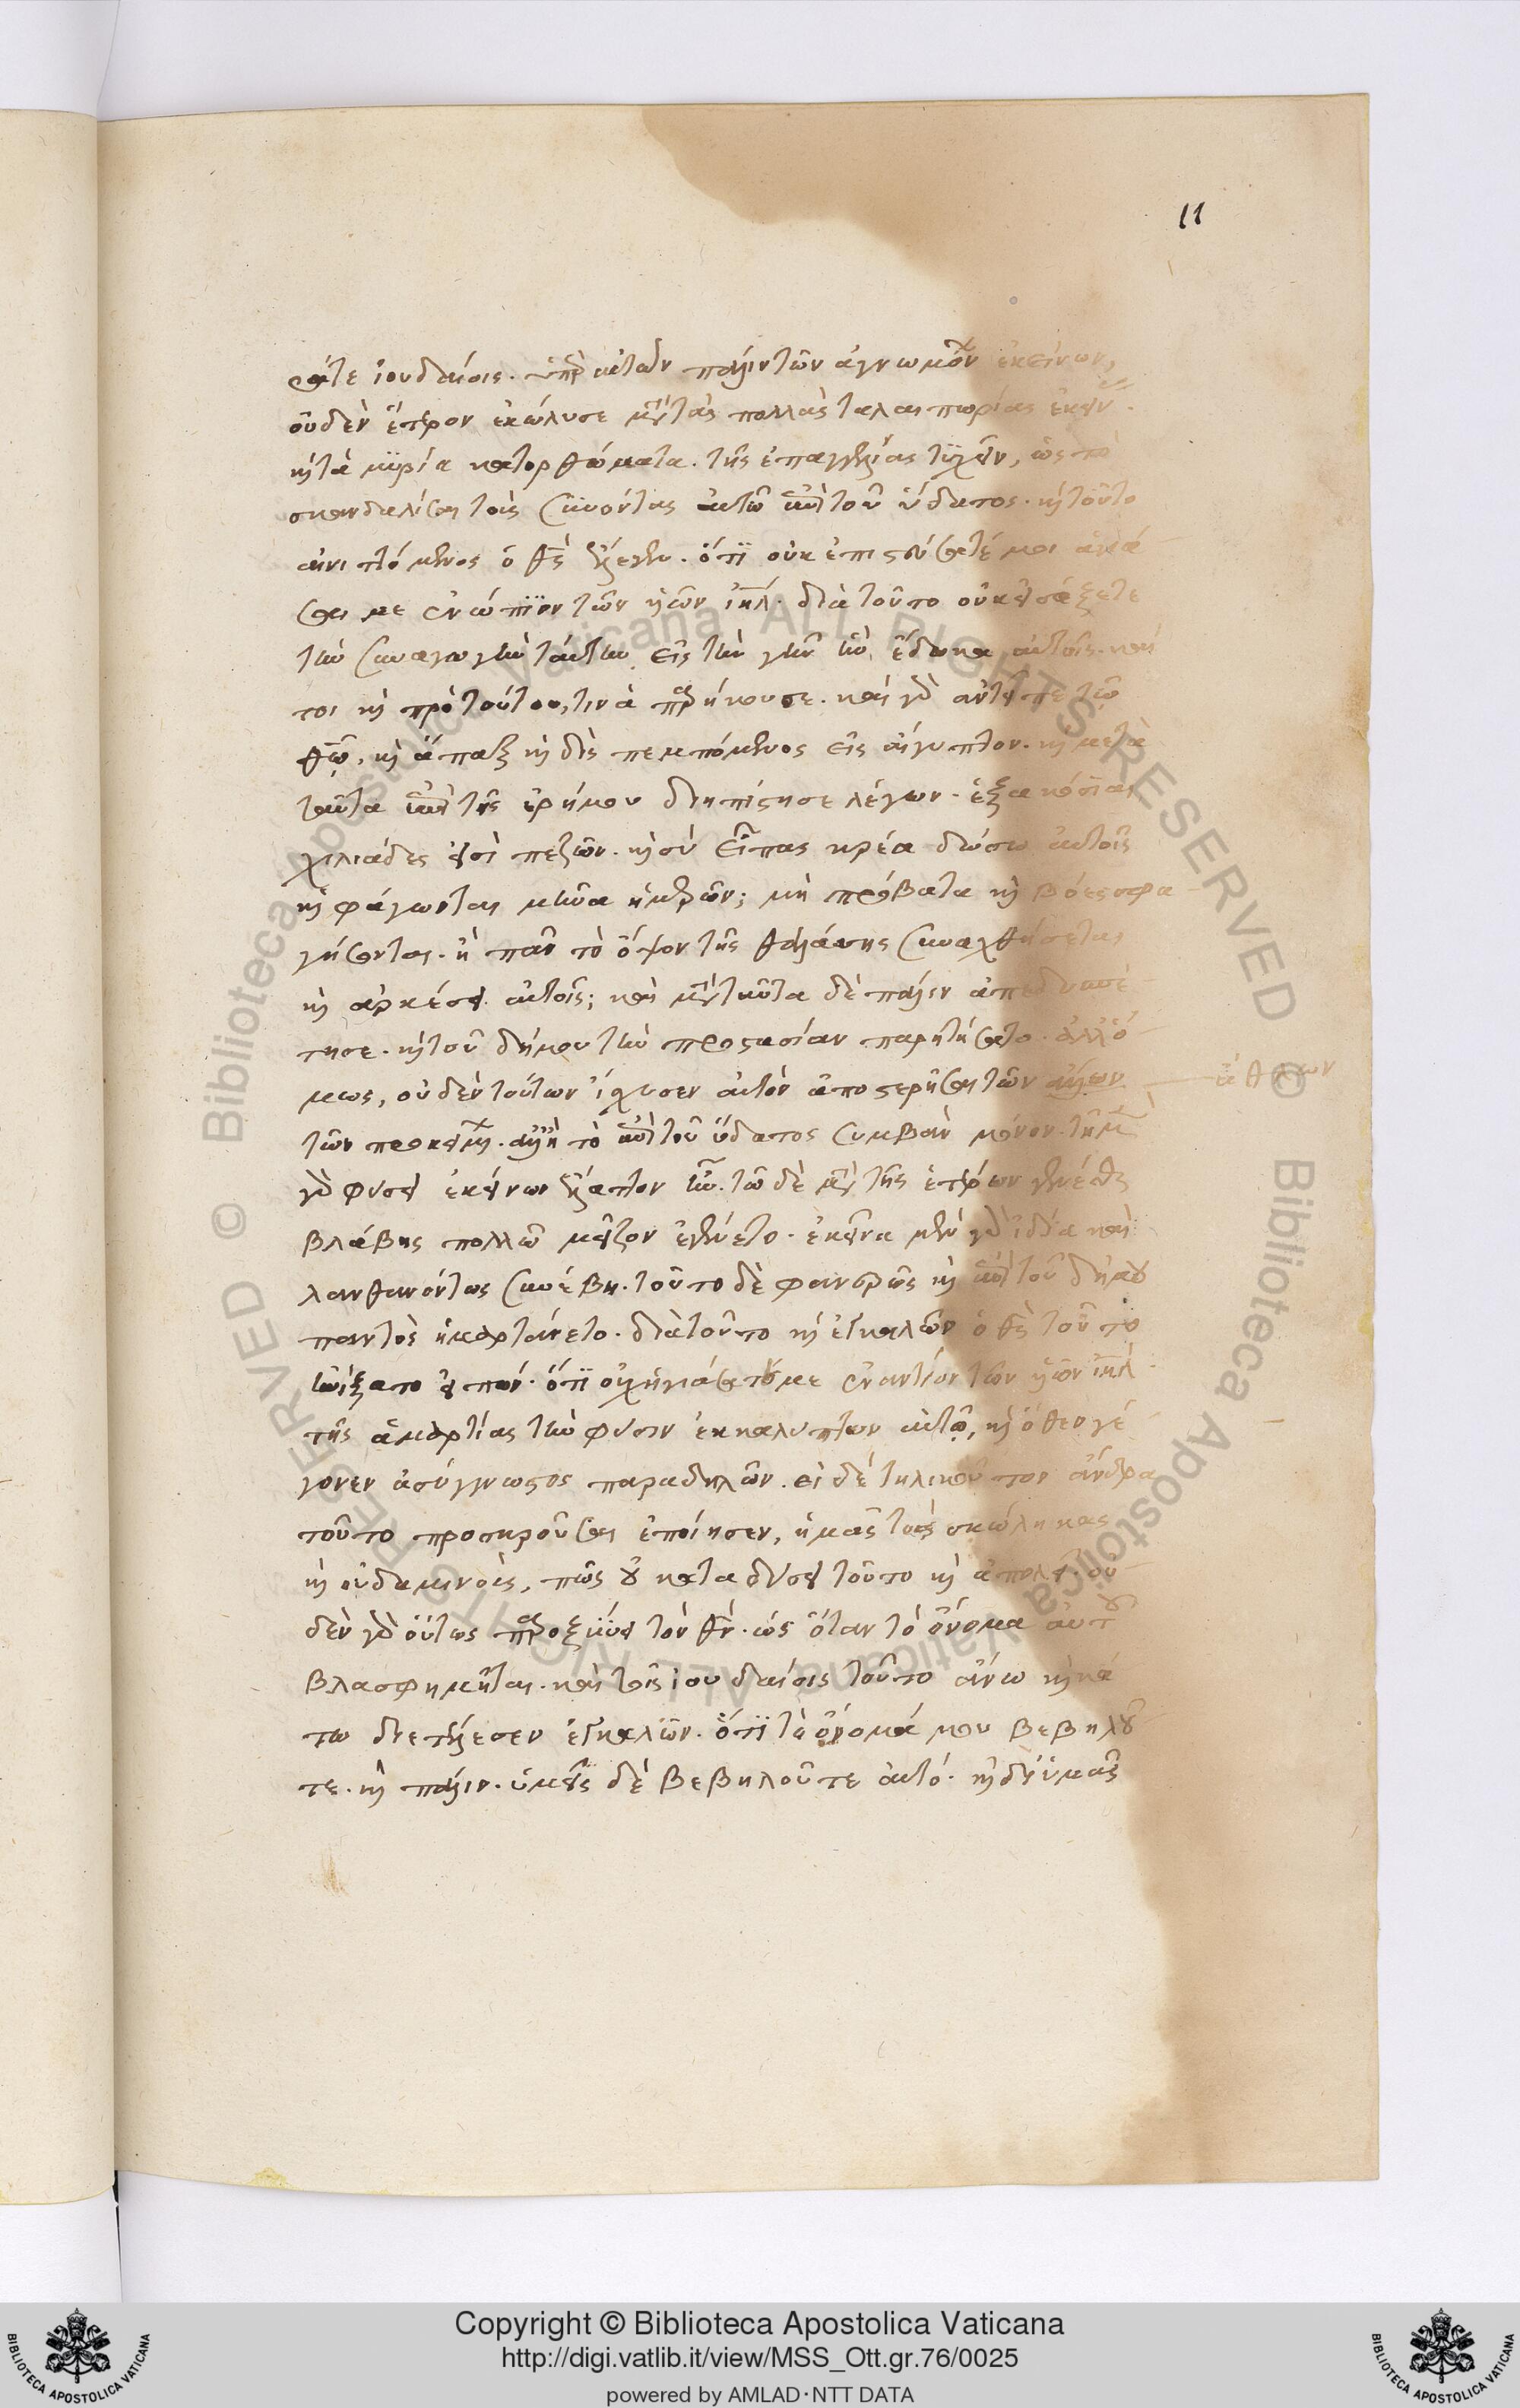 11
σάτε ἰουδαίοις. ὑπὲρ αὐτῶν πάλιν τῶν ἀγνωμόν ἐκείνων,
οὐδὲν ἕτερον ἐκώλυσε μετὰ τὰς πολλὰς ταλαιπωρίας ἐκείν
καὶ τὰ μϋρία κατορθώματα. τῆς ἐπαγγελίας τϋχεῖν, ὡς τὸ
σκανδαλίσαι τοὺς συνόντας αὐτῶ ἐπὶ τοῦ ὕδατος. καὶ τοῦτο
αἰνιττόμενος ὁ θς ἔλεγεν. ὅτϊ οὐκ ἐπιστεύσατέ μοι ἁγιά
σαι με ἐνώπϊον τῶν υἱῶν ιηλ. διὰ τοῦτο οὐκ εἰσάξετε
τὴν συναγωγὴν ταύτην εἰς τὴν γῆν ἣν ἔδωκα αὐτοῖς. καί
τοι καὶ πρὸ τούτου, τινὰ παρήκουσε. καὶ γὰρ ἀντεῖπε τῶ
θῶ, καὶ ἅπαξ καὶ δὶς πεμπόμενος εἰς αἴγυπτον. καὶ μετὰ
ταῦτα ἐπὶ τῆς ἐρήμου διηπίστησε λέγων. ἑξακόσιαι
χιλιάδες εἰσὶ πεζῶν. καὶ σὺ εἶπας κρέα δώσω αὐτοῖς
καὶ φάγωνται μῆνα ἡμερῶν; μὴ πρόβατα καὶ βόες σφα
γήσονται. ἢ πᾶν τὸ ὄψον τῆς θαλάσσης συναχθήσεται
καὶ ἀρκέσει αὐτοῖς; καὶ μετὰ ταῦτα δὲ πάλιν ἀπεδυσπέ
τησε. καὶ τοῦ δήμου τὴν προστασίαν παρῃτήσατο. ἀλλ' ὅ
μως, οὐδὲν τούτων ἴσχυσεν αὐτὸν ἀποστερῆσαι τῶν ἄλλων
ἄθλων
τῶν προκειμ. ἀλλὰ τὸ ἐπὶ τοῦ ὕδατος συμβὰν μόνον. τῆ μὲν
γὰρ φύσει ἐκείνων ἔλαττον ἦν. τῶ δὲ μετὰ τῆς ἑτέρων γενέσθαι
βλάβης πολλῶ μεῖζον ἐγένετο. ἐκεῖνα μὲν γὰρ ἰδία καὶ
λανθανόντως συνέβη. τοῦτο δὲ φανερῶς καὶ ἐπὶ τοῦ δήμου
παντὸς ἡμαρτάνετο. διὰ τοῦτο καὶ ἐγκαλῶν ὁ θς τοῦτο
ἠνίξατο εἰπών. ὅτϊ οὐχ ἡγιάσατέ με ἐναντίον τῶν υἱῶν ιηλ.
τῆς ἁμαρτίας τὴν φύσιν ἐκκαλυπτων αὐτῶ, καὶ ὅθεν γέ
γονεν ἀσύγγνωστος παραδηλῶν. εἰ δὲ τηλικοῦτον ἄνδρα
τοῦτο προσκροῦσαι ἐποίησεν, ἡμᾶς τοὺς σκώληκας
καὶ οὐδαμινοὺς, πῶς οὐ καταδύσει τοῦτο καὶ ἀπολεῖ. οὐ
δὲν γὰρ οὕτως παροξϋνει τὸν θν. ὡς ὅταν τὸ ὄνομα αὐτοῦ
βλασφημῆται. καὶ τοῖς ἰουδαίοις τοῦτο ἄνω καὶ κά
τω διετέλεσεν ἐγκαλῶν. ὅτϊ τὸ ὄνομά μου βεβηλοῦ
τε. καὶ πάλιν. ὑμεῖς δὲ βεβηλοῦτε αὐτό. καὶ δι' ὑμᾶς
Copyright © Biblioteca Apostolica Vaticana
http://digi.vatlib.it/view/MSS_Ott.gr.76/0025
powered by AMLAD·NTT DATA